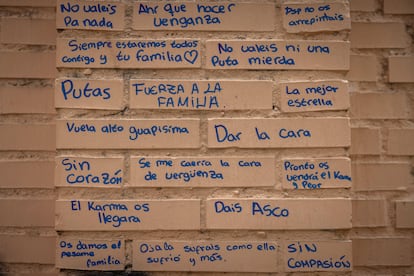 No valeis
Pa nada
Ahr que hacer
venganza
Dsp no os
arrepintais
Siempre estaremos todos
contigo y tu familia ♡
No valeis ni una
Puta mierda
Putas
FUERZA A LA
FAMILIA.
La mejor
estrella
Vuela alto guapisima
Dar la cara
Sin
Corazón
Se me caerra la cara
de vergüenza
Pronto os
vendrá el Karma
y Peor
El Karma os
llegara
Dais Asco
Os damos el
pesame
familia
Ojala sufrais como ella
sufrió y más.
SIN
COMPASIÓN